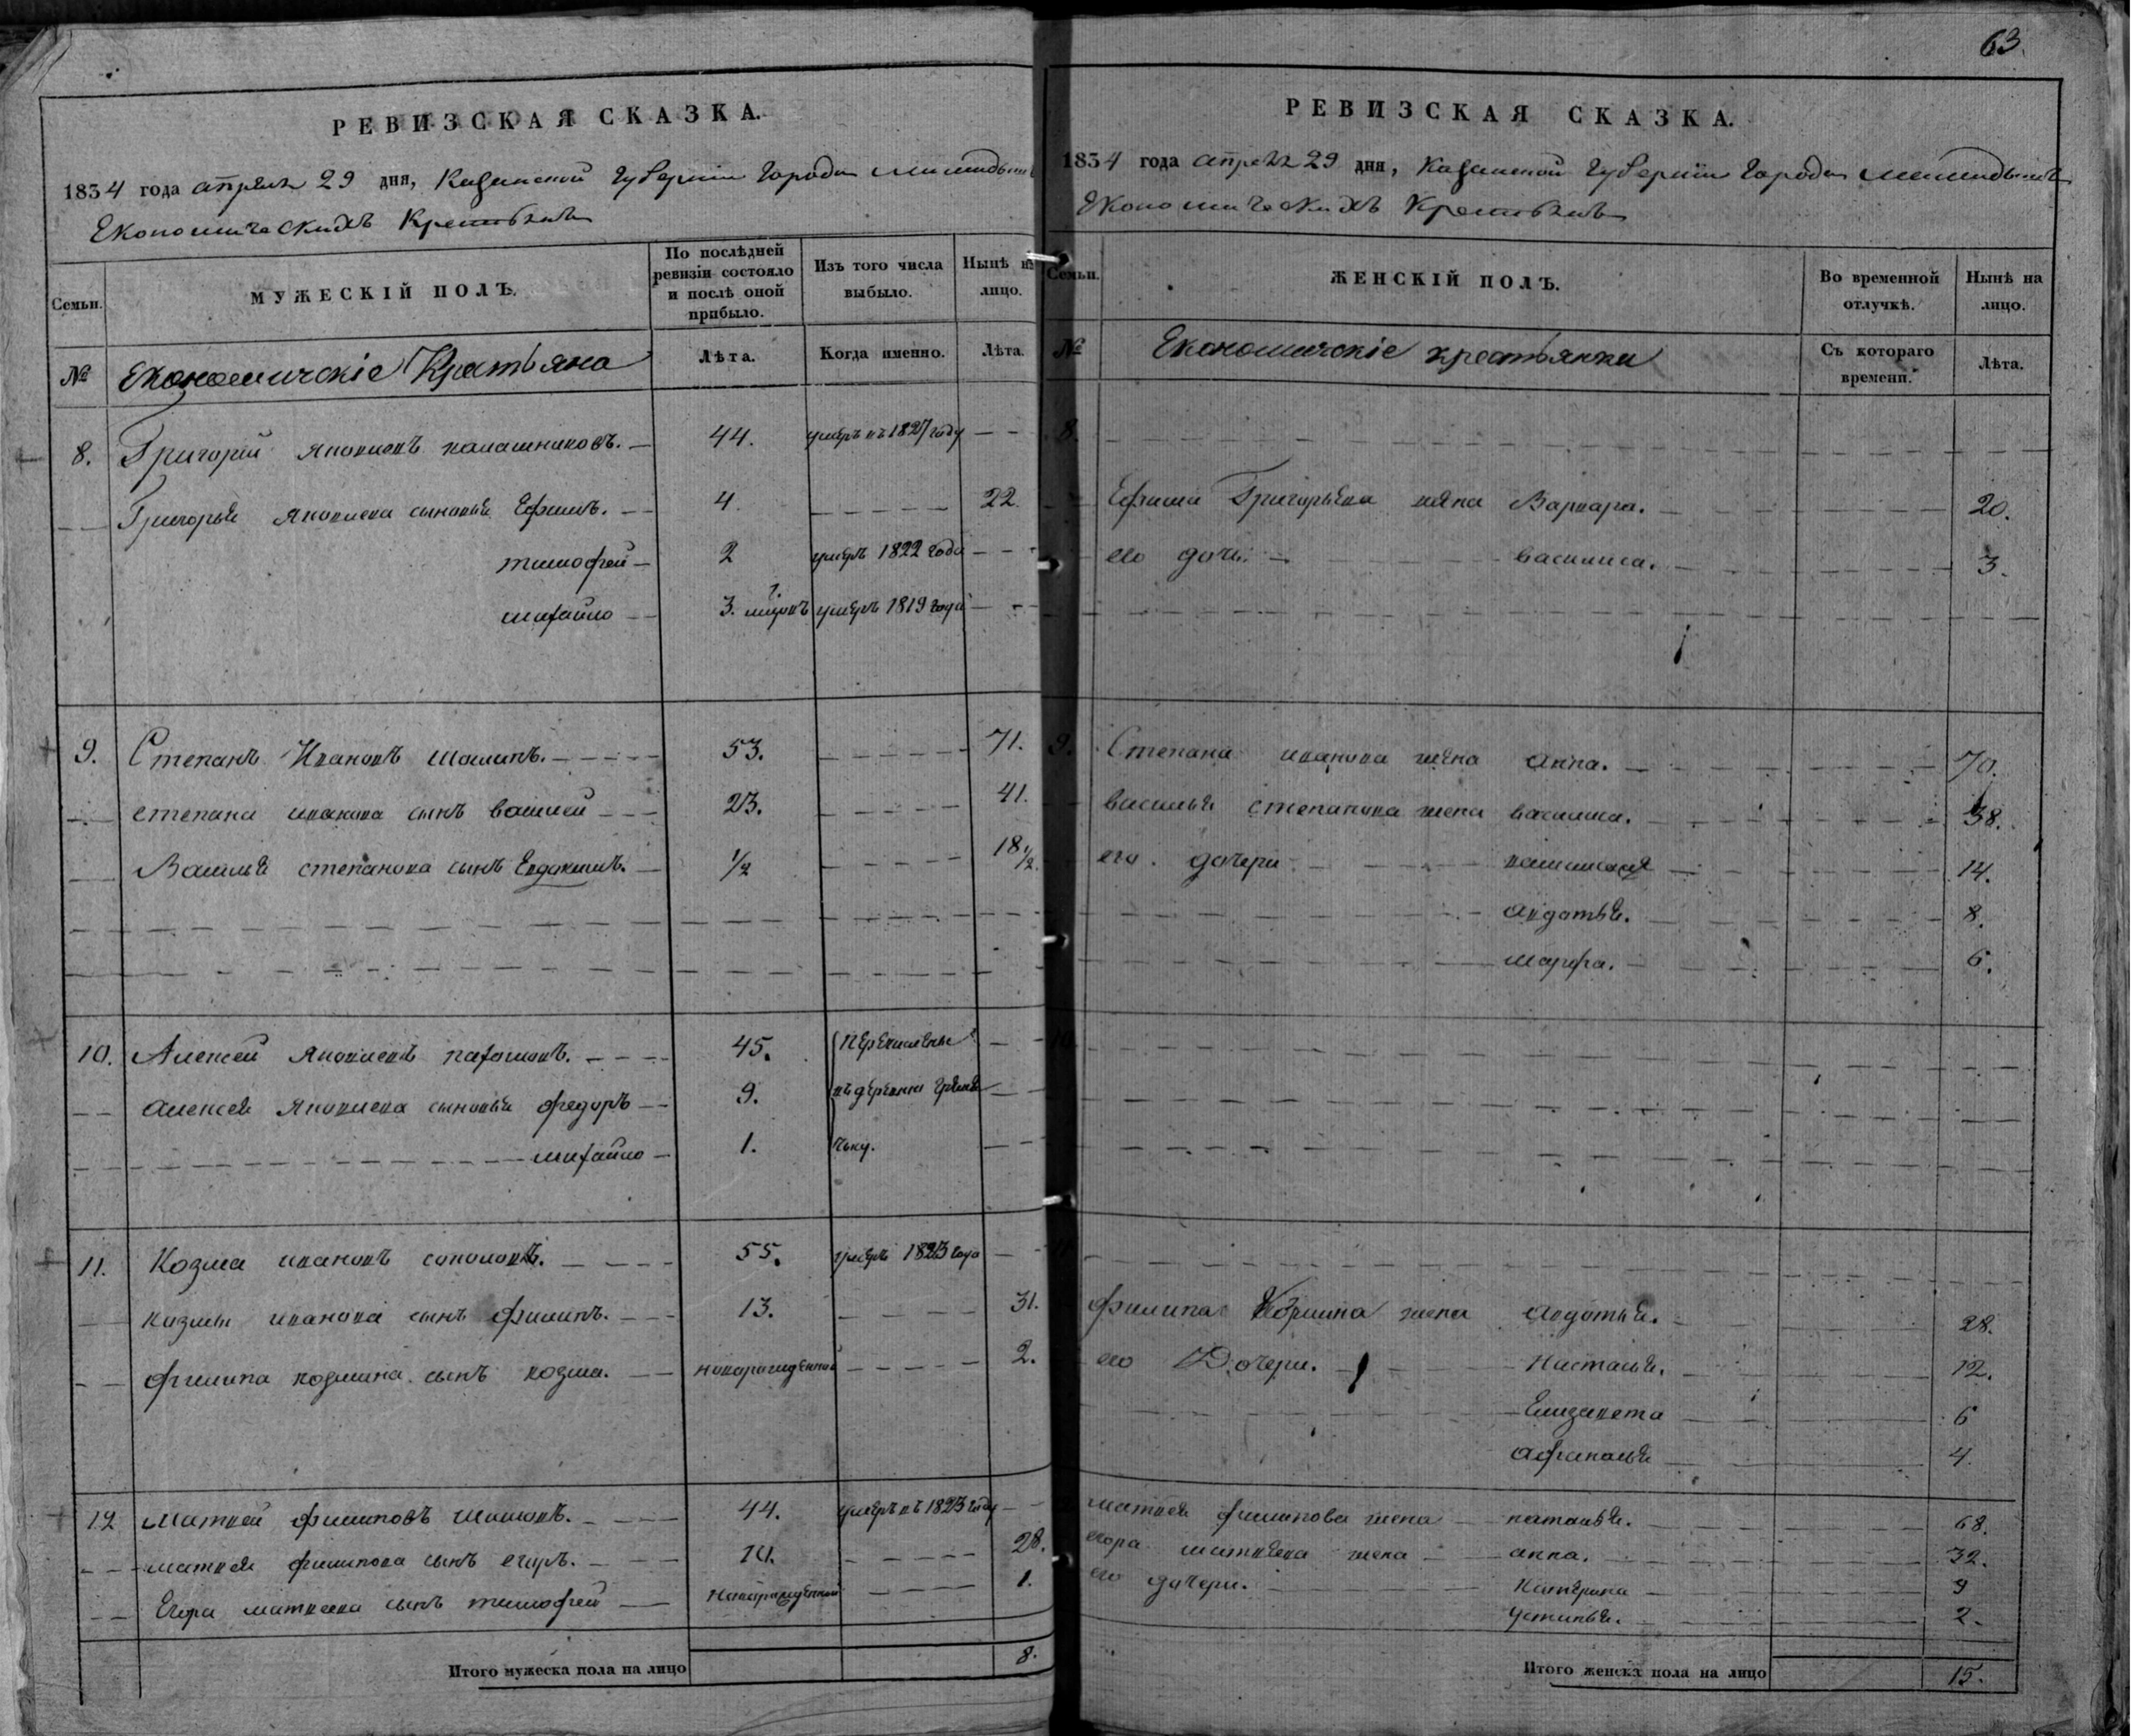 63.
РЕВИЗСКАЯ СКАЗКА.
1834 года апреля 29 дня, Казанской губернии города
Економическихъ Крестьянъ
Семьи.
МУЖЕСКІЙ ПОЛЪ.
По послѣдней ревизіи состояло и послѣ оной прибыло.
Изъ того числа выбыло.
Нынѣ на лицо.
№
Економическіе Крестьяна
Лѣта.
Когда именно.
Лѣта.
8. Григорій Яковлевъ 44. умеръ въ 1827 году
Григорья Яковлева сыновья Ефимъ. 4. 22.
тимофей 2 умеръ 1822 года
михайло 3. умеръ 1819 года
9. Степанъ Ивановъ 53. 71.
степана иванова сынъ василей 23. 41.
Василья степанова сынъ Евдокимъ. 1/2 18 1/2.
10. Алексей Яковлевъ 45. перечислены
алексея Яковлева сыновья федоръ 9. въ деревню
михайло 1.
11. Козма ивановъ соколовъ. 55. умеръ 1823 года
козмы иванова сынъ филипъ. 13. 31.
филипа козмина сынъ козма. новорожденной 2.
12 матвей филиповъ 44. умеръ въ 1823 году
матвея филипова сынъ егоръ. 10. 28.
Егора матвеева сынъ тимофей новорожденной 1.
Итого мужеска пола на лицо 8.
РЕВИЗСКАЯ СКАЗКА.
1834 года апреля 29 дня, Казанской губерніи города
Економическихъ Крестьянъ
Семьи.
ЖЕНСКІЙ ПОЛЪ.
Во временной отлучкѣ.
Нынѣ на лицо.
№
Економическіе крестьянки
Съ котораго времени.
Лѣта.
8.
Ефима Григорьева жена Варвара. 20.
его дочь василиса. 3.
9. Степана иванова жена анна. 70.
василья степанова жена василиса. 38.
его дочери 14.
авдотья. 8.
марфа. 6.
10
11
филипа Козмина жена авдотья. 28.
его Дочери. Настасья. 12.
Елизавета 6
4.
матвея филипова жена наталья. 68.
егора матвеева жена анна. 32.
его дочери. Катерина 9
устинья. 2.
Итого женска пола на лицо 15.